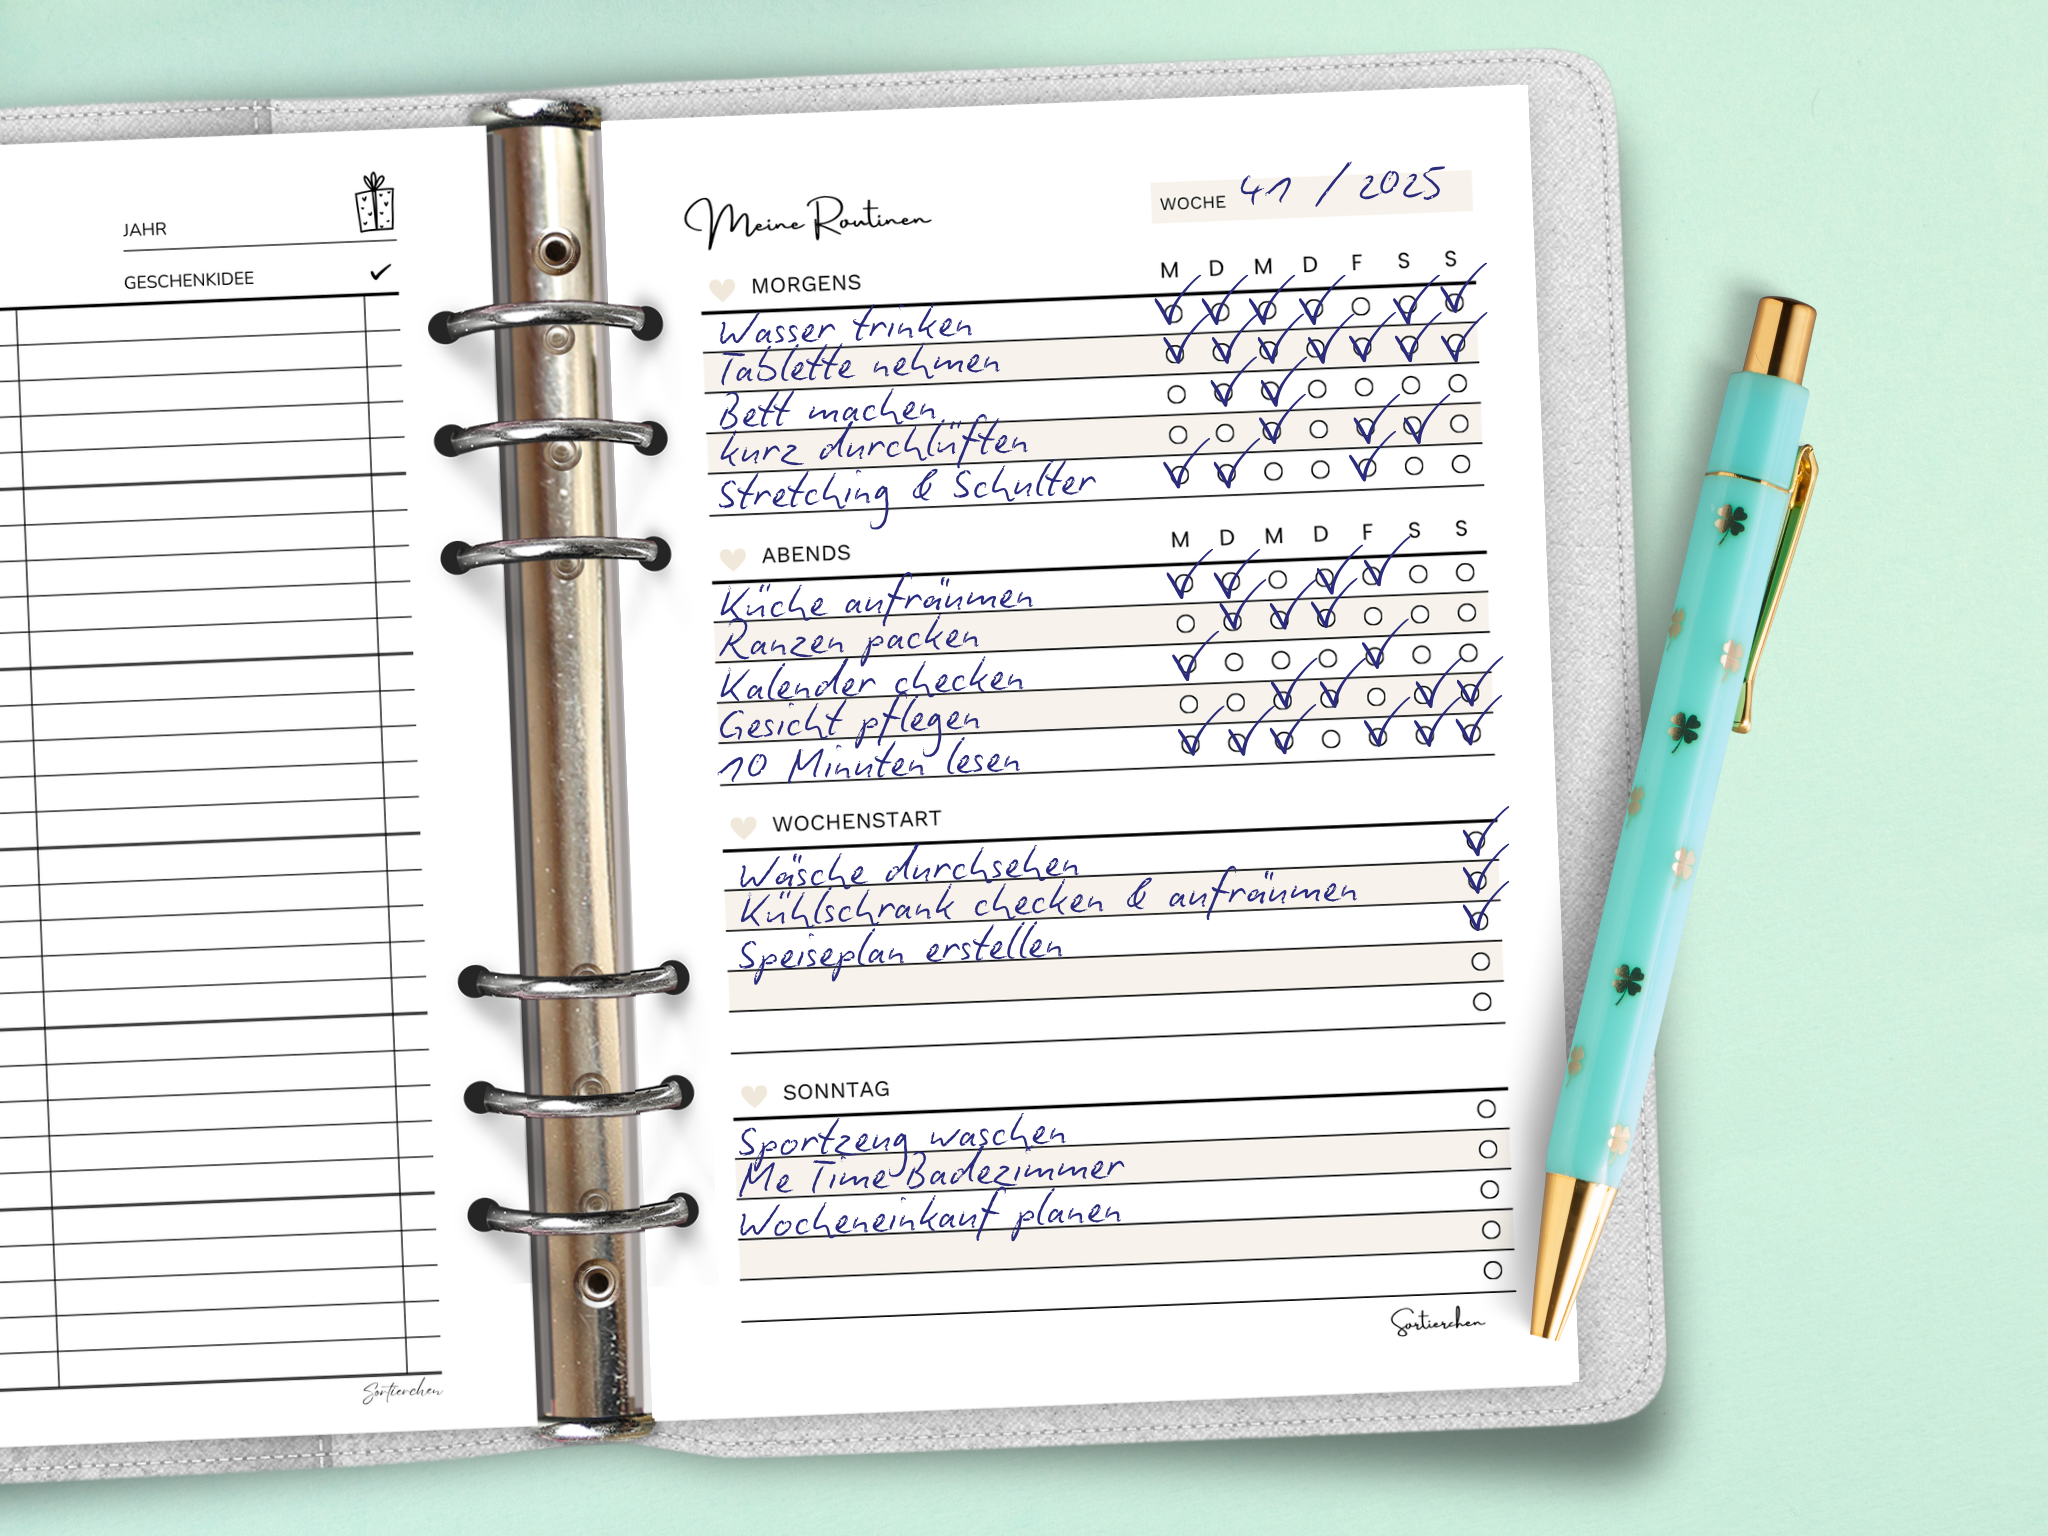 JAHR
GESCHENKIDEE
Sortierchen
Meine Routinen
WOCHE 41 / 2025
MORGENS M D M D F S S
Wasser trinken
Tablette nehmen
Bett machen
kurz durchlüften
Stretching & Schulter
ABENDS M D M D F S S
Küche aufräumen
Ranzen packen
Kalender checken
Gesicht pflegen
10 Minuten lesen
WOCHENSTART
Wäsche durchsehen
Kühlschrank checken & aufräumen
Speiseplan erstellen
SONNTAG
Sportzeug waschen
Me Time Badezimmer
Wocheneinkauf planen
Sortierchen